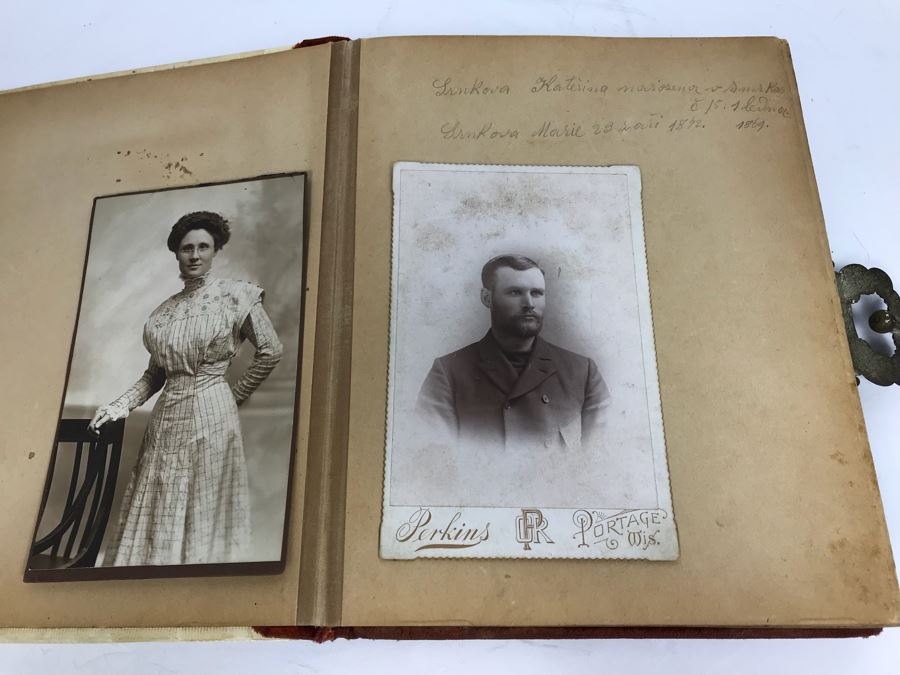 Srnkova Kateřina narozena v
č 15. 1 ledna
Srnkova Marie 23 září 1872. 1869.
Perkins
PORTAGE
Wis.